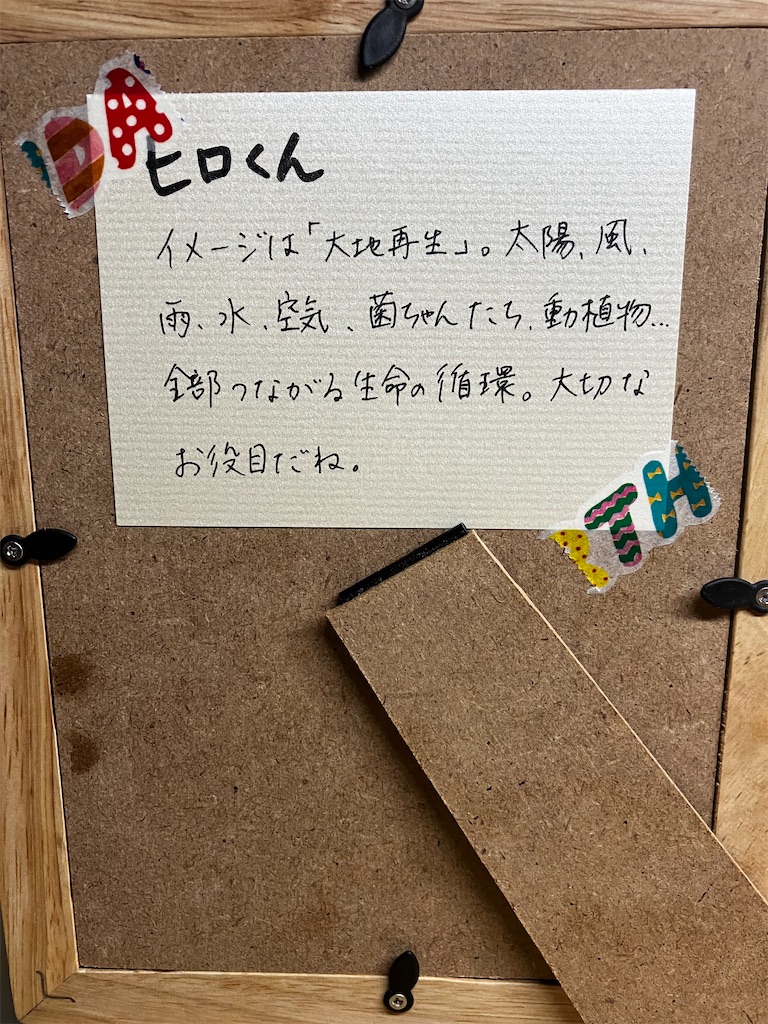 DA
ヒロくん
イメージは「大地再生」。太陽、風、
雨、水、空気、菌ちゃんたち、動植物...
全部つながる生命の循環。大切な
お役目だね。
TH